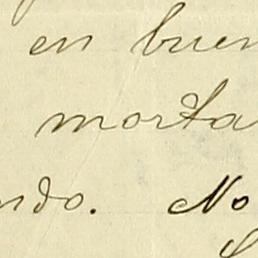 en buen
morta
ndo. No